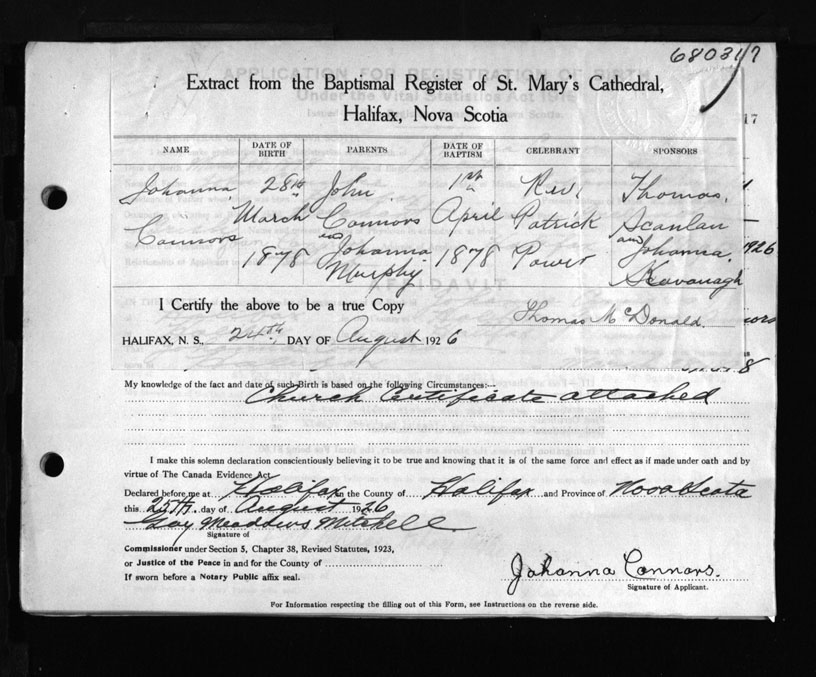 680317
Extract from the Baptismal Register of St. Mary's Cathedral,
Halifax, Nova Scotia
NAME DATE OF BIRTH PARENTS DATE OF BAPTISM CELEBRANT SPONSORS
Johanna 28th John 1st Rev. Thomas
Connors March Connors April Patrick Scanlan
1878 and Johanna 1878 Power and Johanna
Murphy Kavanagh
1926
I Certify the above to be a true Copy Thomas McDonald.
HALIFAX, N. S., 24th DAY OF August 1926
My knowledge of the fact and date of such Birth is based on the following Circumstances:—
Church Certificate attached
I make this solemn declaration conscientiously believing it to be true and knowing that it is of the same force and effect as if made under oath and by
virtue of The Canada Evidence Act.
Declared before me at Halifax in the County of Halifax and Province of Nova Scotia
this 25th day of August 1926
Gay Meadows Mitchell
Signature of
Commissioner under Section 5, Chapter 38, Revised Statutes, 1923,
or Justice of the Peace in and for the County of
If sworn before a Notary Public affix seal.
Johanna Connors.
Signature of Applicant.
For Information respecting the filling out of this Form, see Instructions on the reverse side.